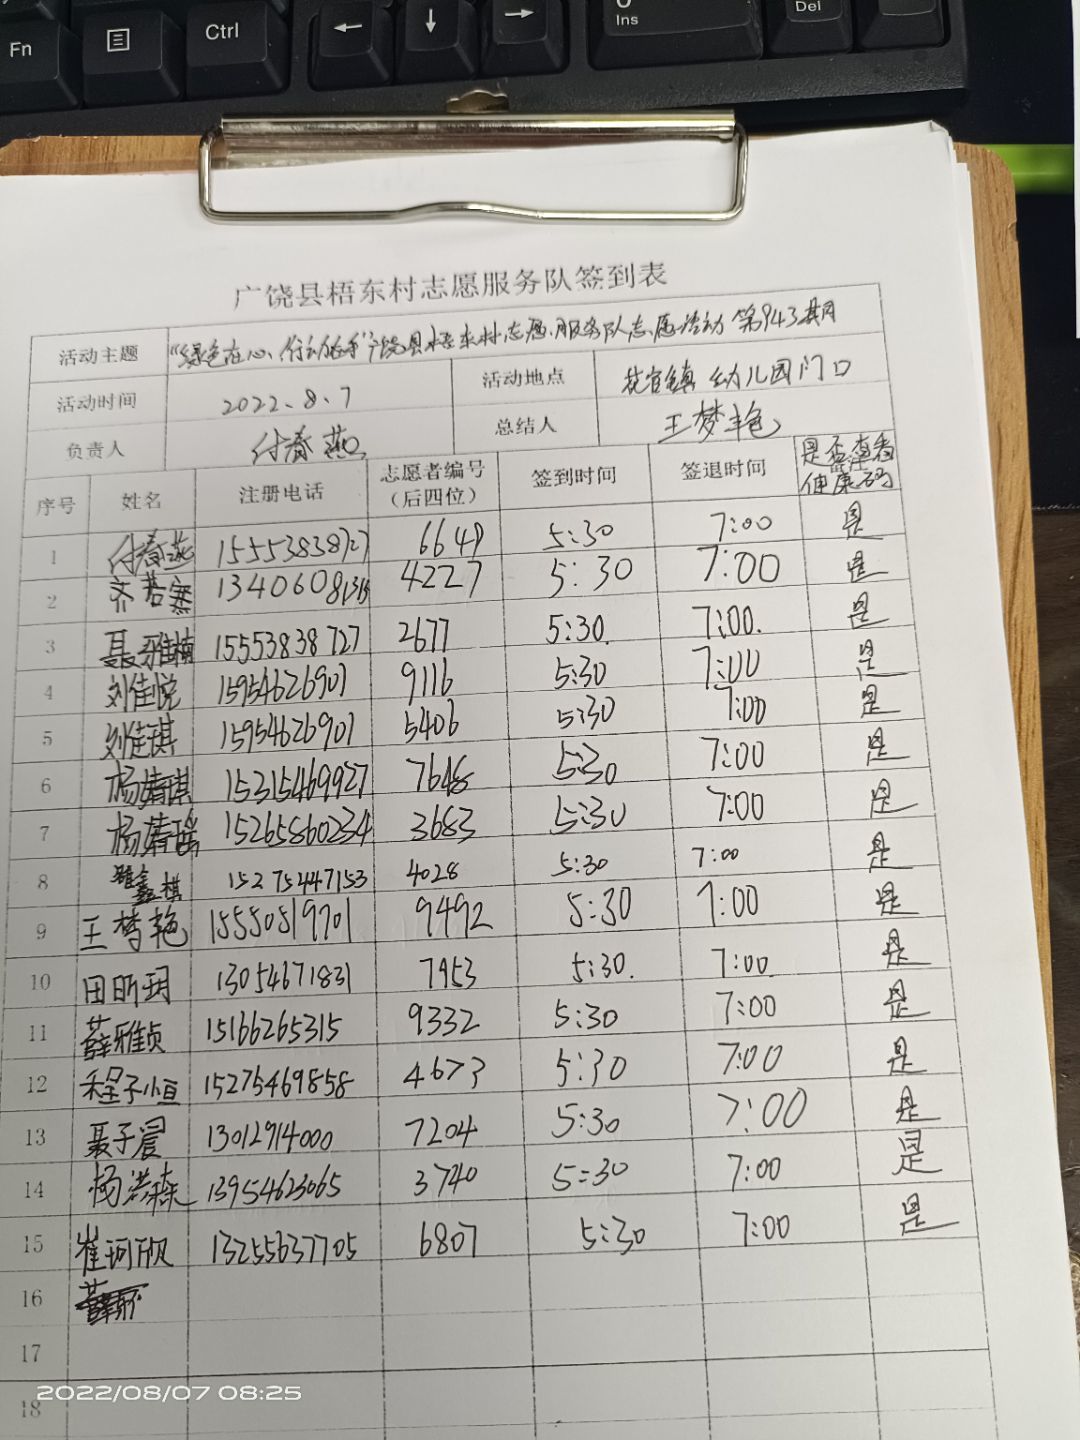 Fn
Ctrl
Ins
Del
广饶县梧东村志愿服务队签到表
活动主题 "绿色在心、行动在手"广饶县梧东村志愿服务队志愿活动 第943期
活动时间 2022、8、7 活动地点 花官镇 幼儿园门口
负责人 付春燕 总结人 王梦艳
序号 姓名 注册电话 志愿者编号（后四位） 签到时间 签退时间 是否查看健康码
1 付春燕 15553838727 6649 5:30 7:00 是
2 齐若 4227 5:30 7:00 是
3 聂雅楠 15553838727 2677 5:30. 7:00. 是
4 刘佳悦 15954626901 9116 5:30 7:00 是
5 刘佳琪 15954626901 5406 5:30 7:00 是
6 杨婧琪 15315469927 7648 5:30 7:00 是
7 杨婧瑶 15265860234 3683 5:30 7:00 是
8 鑫棋 15275447153 4028 5:30 7:00 是
9 王梦艳 15550519701 9492 5:30 7:00 是
10 田昕玥 13054671831 7953 5:30. 7:00 是
11 薛雅贞 15166265315 9332 5:30 7:00 是
12 程子恒 15275469858 4673 5:30 7:00 是
13 聂子晨 13012914000 7204 5:30 7:00 是
14 杨洪森 13954623065 3740 5:30 7:00 是
15 崔珂欣 13255637705 6807 5:30 7:00 是
16
17
18
2022/08/07 08:25